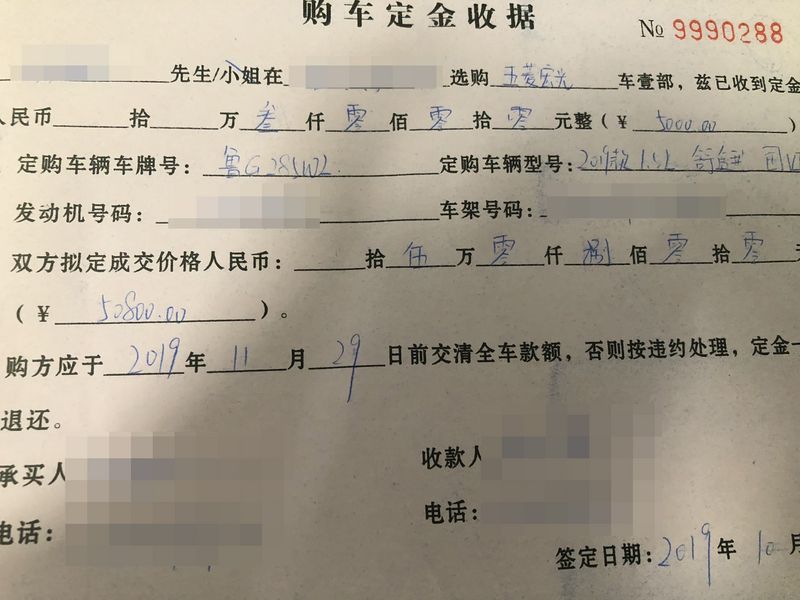 购车定金收据
№ 9990288
先生/小姐在 选购 五菱宏光 车壹部，兹已收到定金
人民币 拾 万 叁 仟 零 佰 零 拾 零 元整（¥ 5000.00 ）
定购车辆车牌号： 鲁G285W2 定购车辆型号： 2019款 1.5L 舒适型 国VI
发动机号码： 车架号码：
双方拟定成交价格人民币： 拾 伍 万 零 仟 捌 佰 零 拾 零 元
（¥ 50800.00 ）。
购方应于 2019 年 11 月 29 日前交清全车款额，否则按违约处理，定金一
退还。
承买人 收款人
电话： 电话：
签定日期：2019 年 10 月